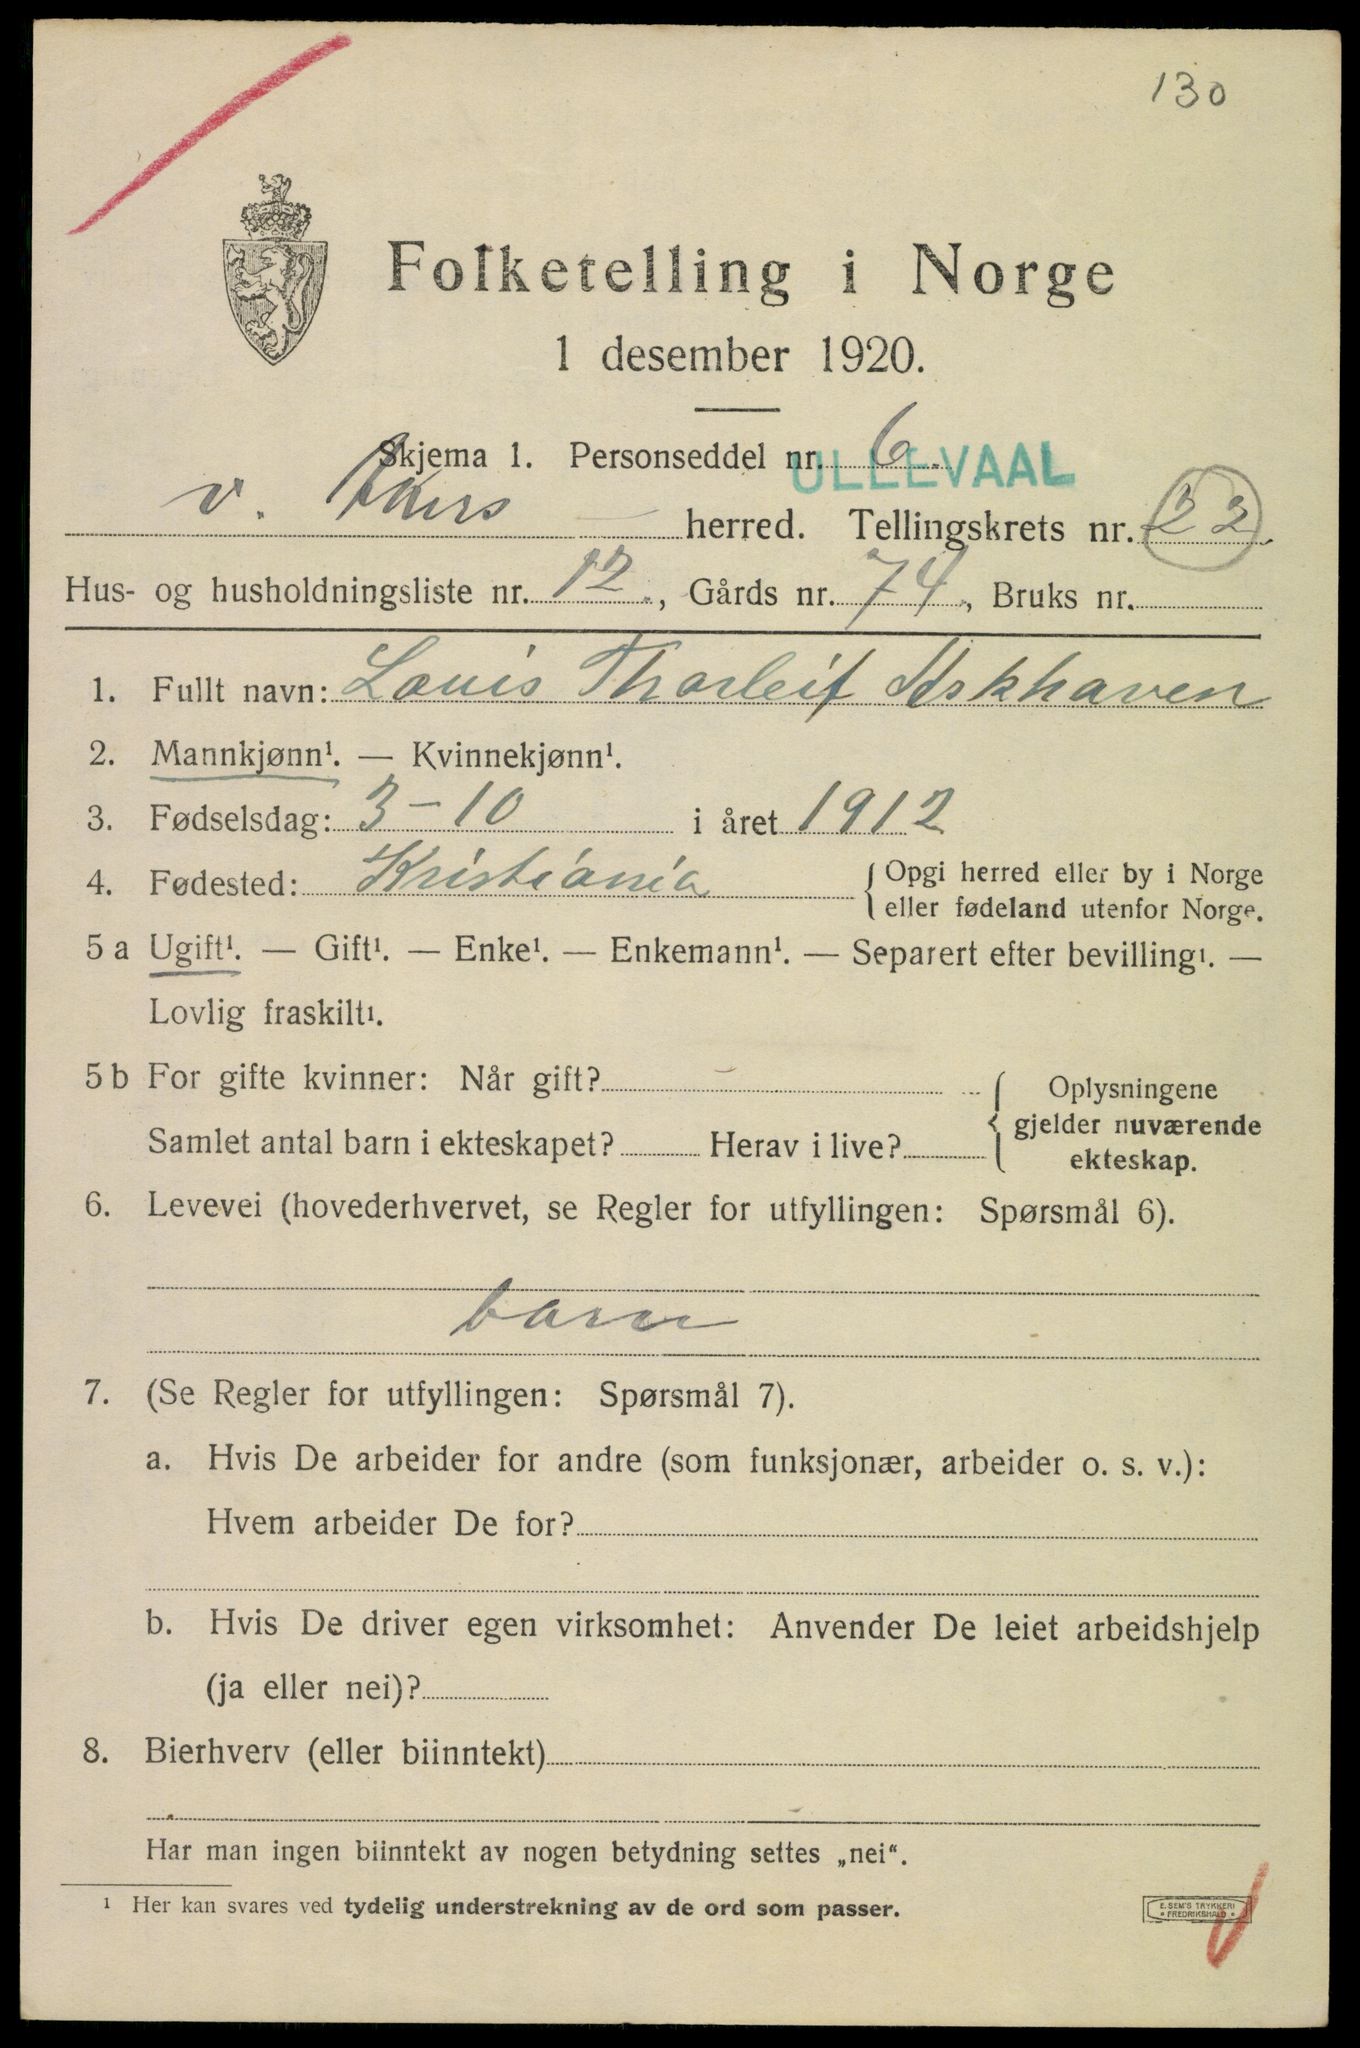 130
Folketelling i Norge
1 desember 1920.
Skjema 1. Personseddel nr. 6.
ULLEVAAL
v. Akers herred. Tellingskrets nr. 22.
Hus- og husholdningsliste nr. 12., Gårds nr. 74., Bruks nr.
1. Fullt navn: Louis Thorleif Askhaven
2. Mannkjønn¹. — Kvinnekjønn¹.
3. Fødselsdag: 3-10 i året 1912
4. Fødested: Kristiania { Opgi herred eller by i Norge
eller fødeland utenfor Norge.
5 a Ugift¹. — Gift¹. — Enke¹. — Enkemann¹. — Separert efter bevilling¹. —
Lovlig fraskilt¹.
5 b For gifte kvinner: Når gift? — { Oplysningene
gjelder nuværende
Samlet antal barn i ekteskapet? Herav i live?
ekteskap.
6. Levevei (hovederhvervet, se Regler for utfyllingen: Spørsmål 6).
barn
7. (Se Regler for utfyllingen: Spørsmål 7).
a. Hvis De arbeider for andre (som funksjonær, arbeider o. s. v.):
Hvem arbeider De for?
b. Hvis De driver egen virksomhet: Anvender De leiet arbeidshjelp
(ja eller nei)?
8. Bierhverv (eller biinntekt)
Har man ingen biinntekt av nogen betydning settes „nei".
¹ Her kan svares ved tydelig understrekning av de ord som passer.
E. SEM'S TRYKKERI
• FREDRIKSHALD •